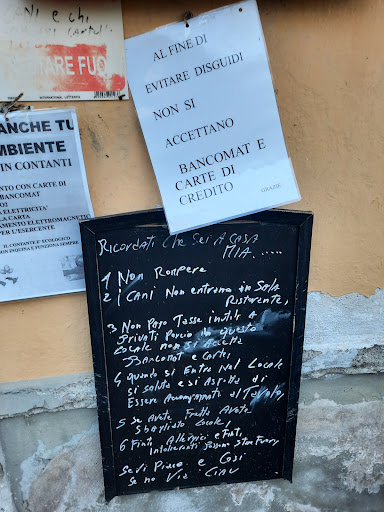 Ni e chi
TARE FUO
INTERNATIONAL LETTERING
ANCHE TU
MBIENTE
IN CONTANTI
NTO CON CARTE DI
BANCOMAT
O2
A ELETTRICITA'
LA CARTA
AMENTO ELETTROMAGNETIC
PER L'ESERCENTE
IL CONTANTE E' ECOLOGICO
NON INQUINA E FUNZIONA SEMPRE
AL FINE DI
EVITARE DISGUIDI
NON SI
ACCETTANO
BANCOMAT E
CARTE DI
CREDITO
GRAZIE
Ricordati che sei A CASA
MIA.....
1 Non Rompere
2 I CANI Non entrano in SALA
Ristorante,
3 Non Pago Tasse inutili A
Privati Percio in questo
Locale non si Accetta
Bancomat e Carte,
4 quando si Entra Nel Locale
si saluta e si Aspetta di
Essere Accompagnati al Tavolo,
5 Se Avete Fretta Avete
Sbagliato Locale,
6 Finti Allergici e Finti
Intolleranti Possono Stare Fuori,
Se vi Piace e Cosi
Se no Via Ciau